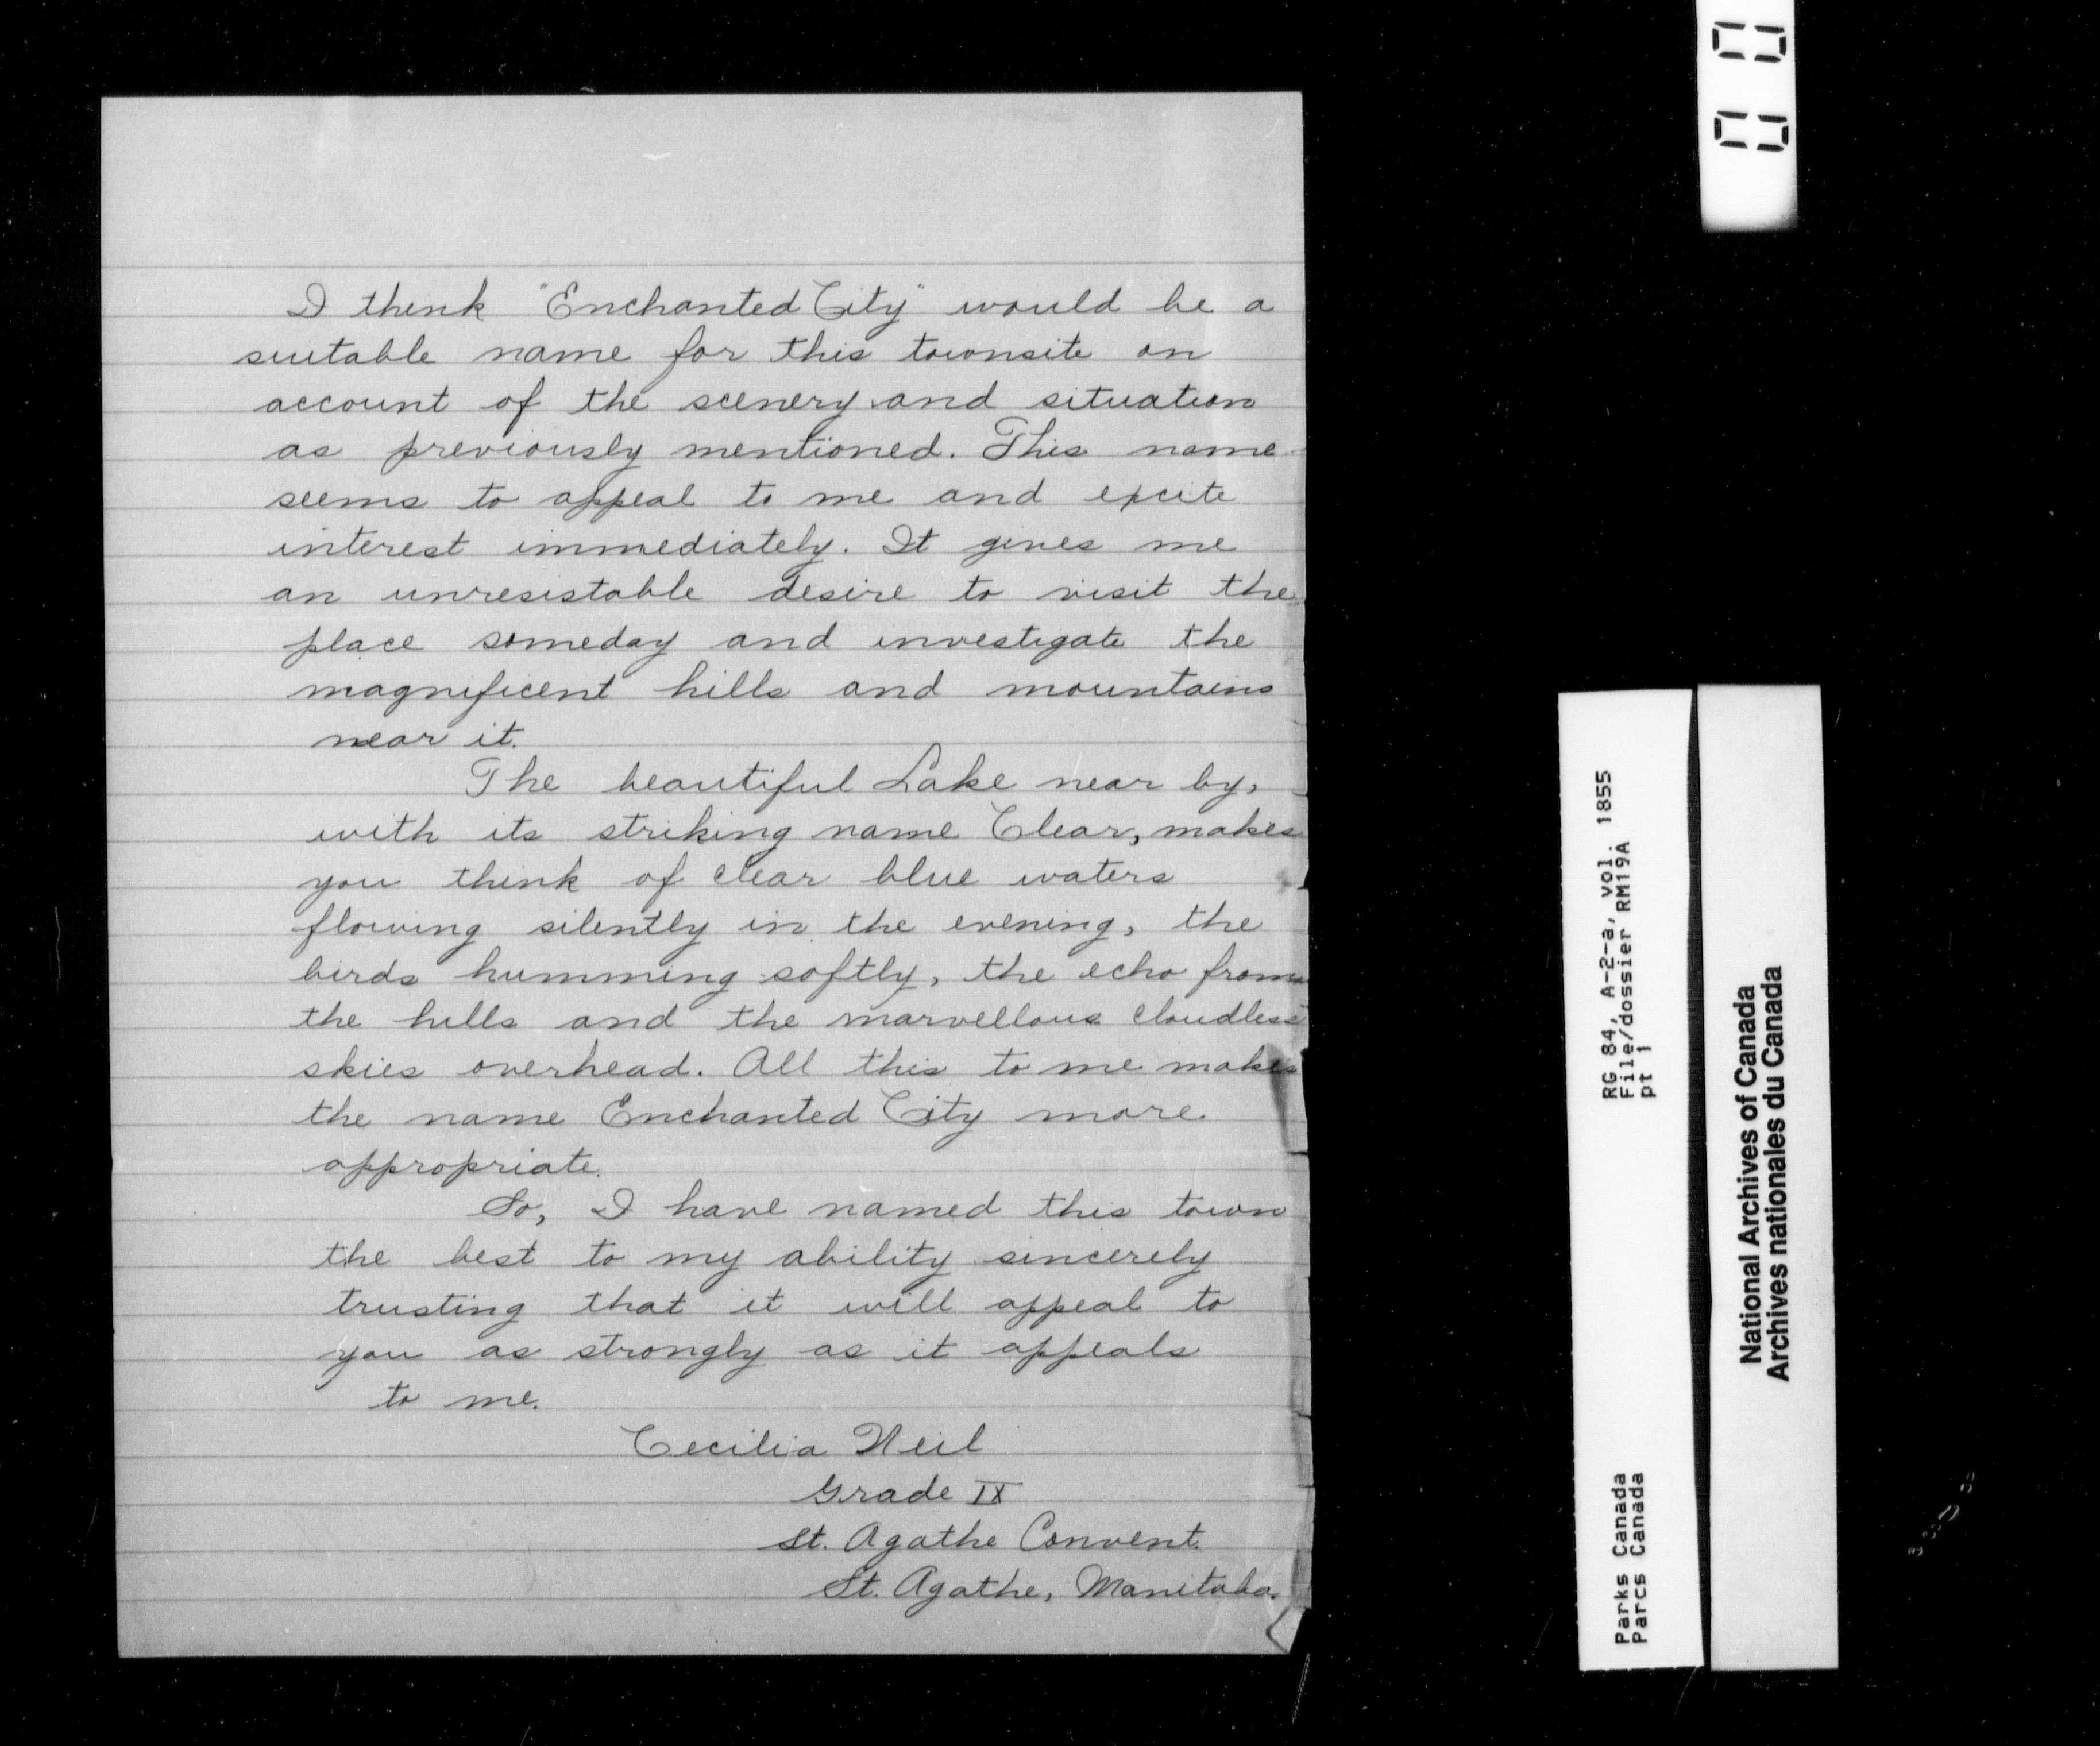 I think "Enchanted City" would be a
suitable name for this townsite on
account of the scenery and situation
as previously mentioned. This name
seems to appeal to me and excite
interest immediately. It gives me
an unresistable desire to visit the
place someday and investigate the
magnificent hills and mountains
near it.
The beautiful Lake near by,
with its striking name Clear, makes
you think of clear blue waters
flowing silently in the evening, the
birds humming softly, the echo from
the hills and the marvellous cloudless
skies overhead. All this to me makes
the name Enchanted City more
appropriate.
So, I have named this town
the best to my ability sincerely
trusting that it will appeal to
you as strongly as it appeals
to me.
Cecilia Neil
Grade IX
St. Agathe Convent.
St. Agathe, Manitoba.
RG 84, A-2-a, vol. 1855
File/dossier RM19A
pt 1
Parks Canada
Parcs Canada
National Archives of Canada
Archives nationales du Canada